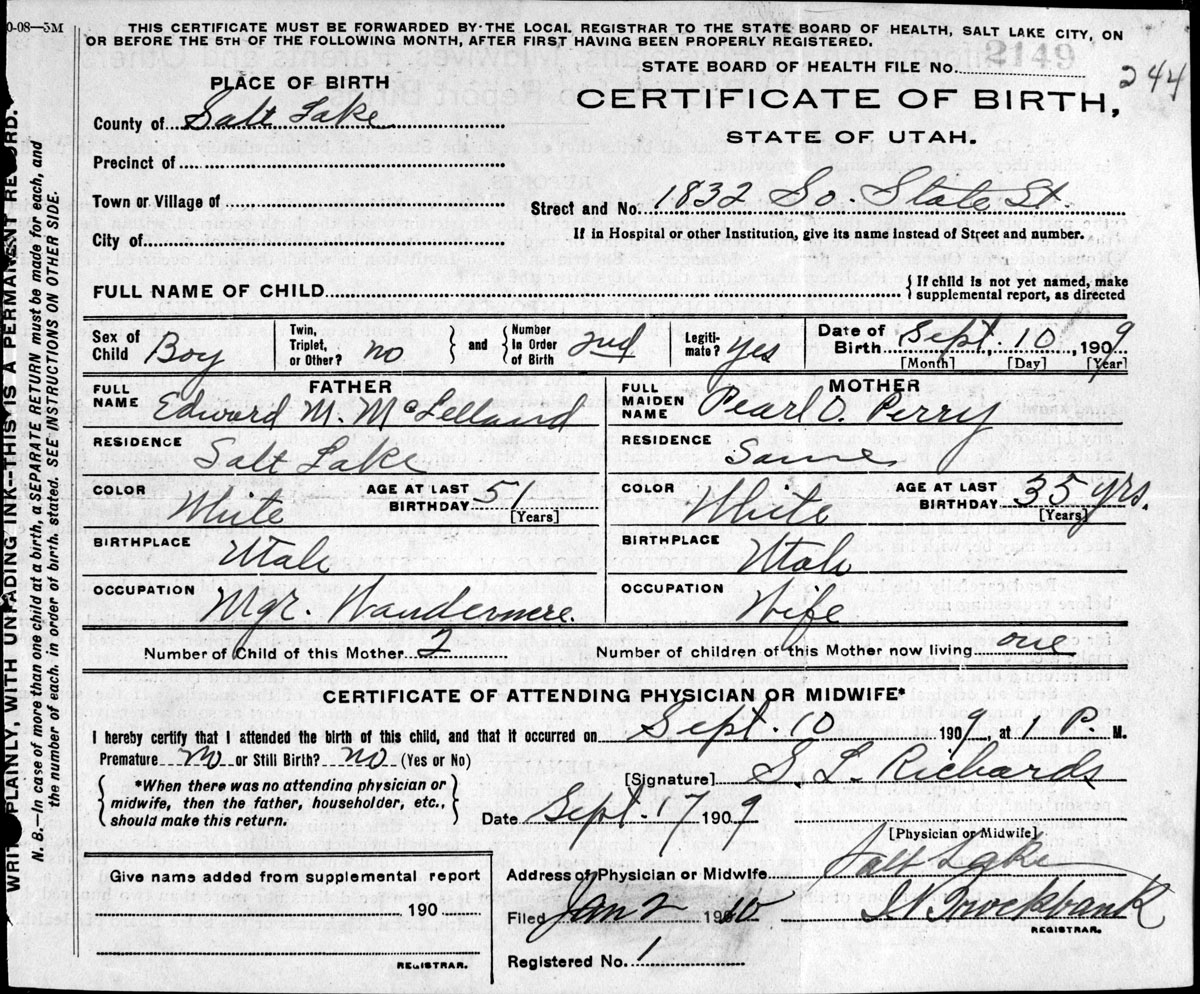 0-08—5M
THIS CERTIFICATE MUST BE FORWARDED BY THE LOCAL REGISTRAR TO THE STATE BOARD OF HEALTH, SALT LAKE CITY, ON
OR BEFORE THE 5TH OF THE FOLLOWING MONTH, AFTER FIRST HAVING BEEN PROPERLY REGISTERED.
STATE BOARD OF HEALTH FILE No. 2149
244
CERTIFICATE OF BIRTH,
STATE OF UTAH.
PLACE OF BIRTH
County of Salt Lake
Precinct of
Town or Village of
City of
Street and No. 1832 So. State St.
If in Hospital or other Institution, give its name instead of Street and number.
FULL NAME OF CHILD { If child is not yet named, make
supplemental report, as directed
Sex of Child Boy
Twin, Triplet, or Other? no
and
Number In Order of Birth 2nd
Legiti-mate? yes
Date of Birth Sept. 10, 1909
[Month] [Day] [Year]
FATHER
FULL NAME Edward M. McLelland
RESIDENCE
Salt Lake
COLOR White AGE AT LAST BIRTHDAY 51 [Years]
BIRTHPLACE
Utah
OCCUPATION
Mgr. Wandermere.
MOTHER
FULL MAIDEN NAME Pearl O. Perry
RESIDENCE
Same
COLOR White AGE AT LAST BIRTHDAY 35 yrs. [Years]
BIRTHPLACE
Utah
OCCUPATION
Wife
Number of Child of this Mother 2
Number of children of this Mother now living one
CERTIFICATE OF ATTENDING PHYSICIAN OR MIDWIFE*
I hereby certify that I attended the birth of this child, and that it occurred on Sept. 10 1909, at 1 P. M.
Premature no or Still Birth? no (Yes or No)
{ *When there was no attending physician or
midwife, then the father, householder, etc.,
should make this return. }
[Signature] S. L. Richards
Date Sept. 17 1909
[Physician or Midwife]
Address of Physician or Midwife Salt Lake
Filed Jan 2 1910
Brockbank
REGISTRAR.
Registered No. 1
Give name added from supplemental report
190
REGISTRAR.
WRITE PLAINLY, WITH UNFADING INK--THIS IS A PERMANENT RECORD.
N. B.—In case of more than one child at a birth, a SEPARATE RETURN must be made for each, and
the number of each, in order of birth, stated. SEE INSTRUCTIONS ON OTHER SIDE.